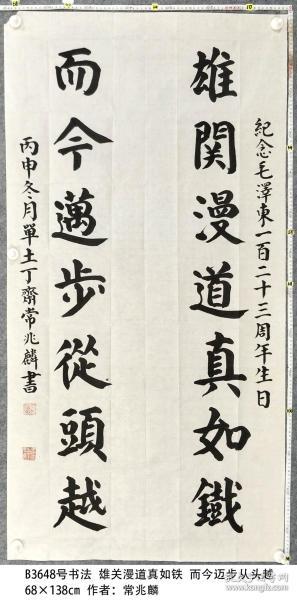 紀念毛澤東一百二十三周年生日
雄関漫道真如鐵
而今邁步從頭越
丙申冬月單土丁齋常兆麟書
B3648号书法 雄关漫道真如铁 而今迈步从头越
68×138cm 作者：常兆麟